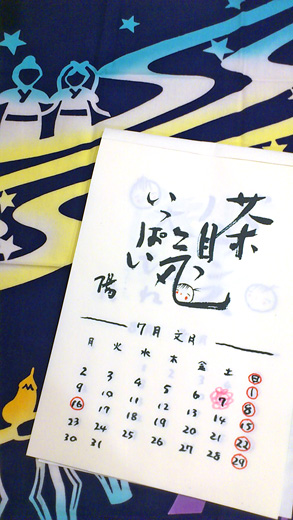 茶目っ気
いっぱい
陽
7月 文月
月 火 水 木 金 土 日
1
2 3 4 5 6 7 8
9 10 11 12 13 14 15
16 17 18 19 20 21 22
23 24 25 26 27 28 29
30 31